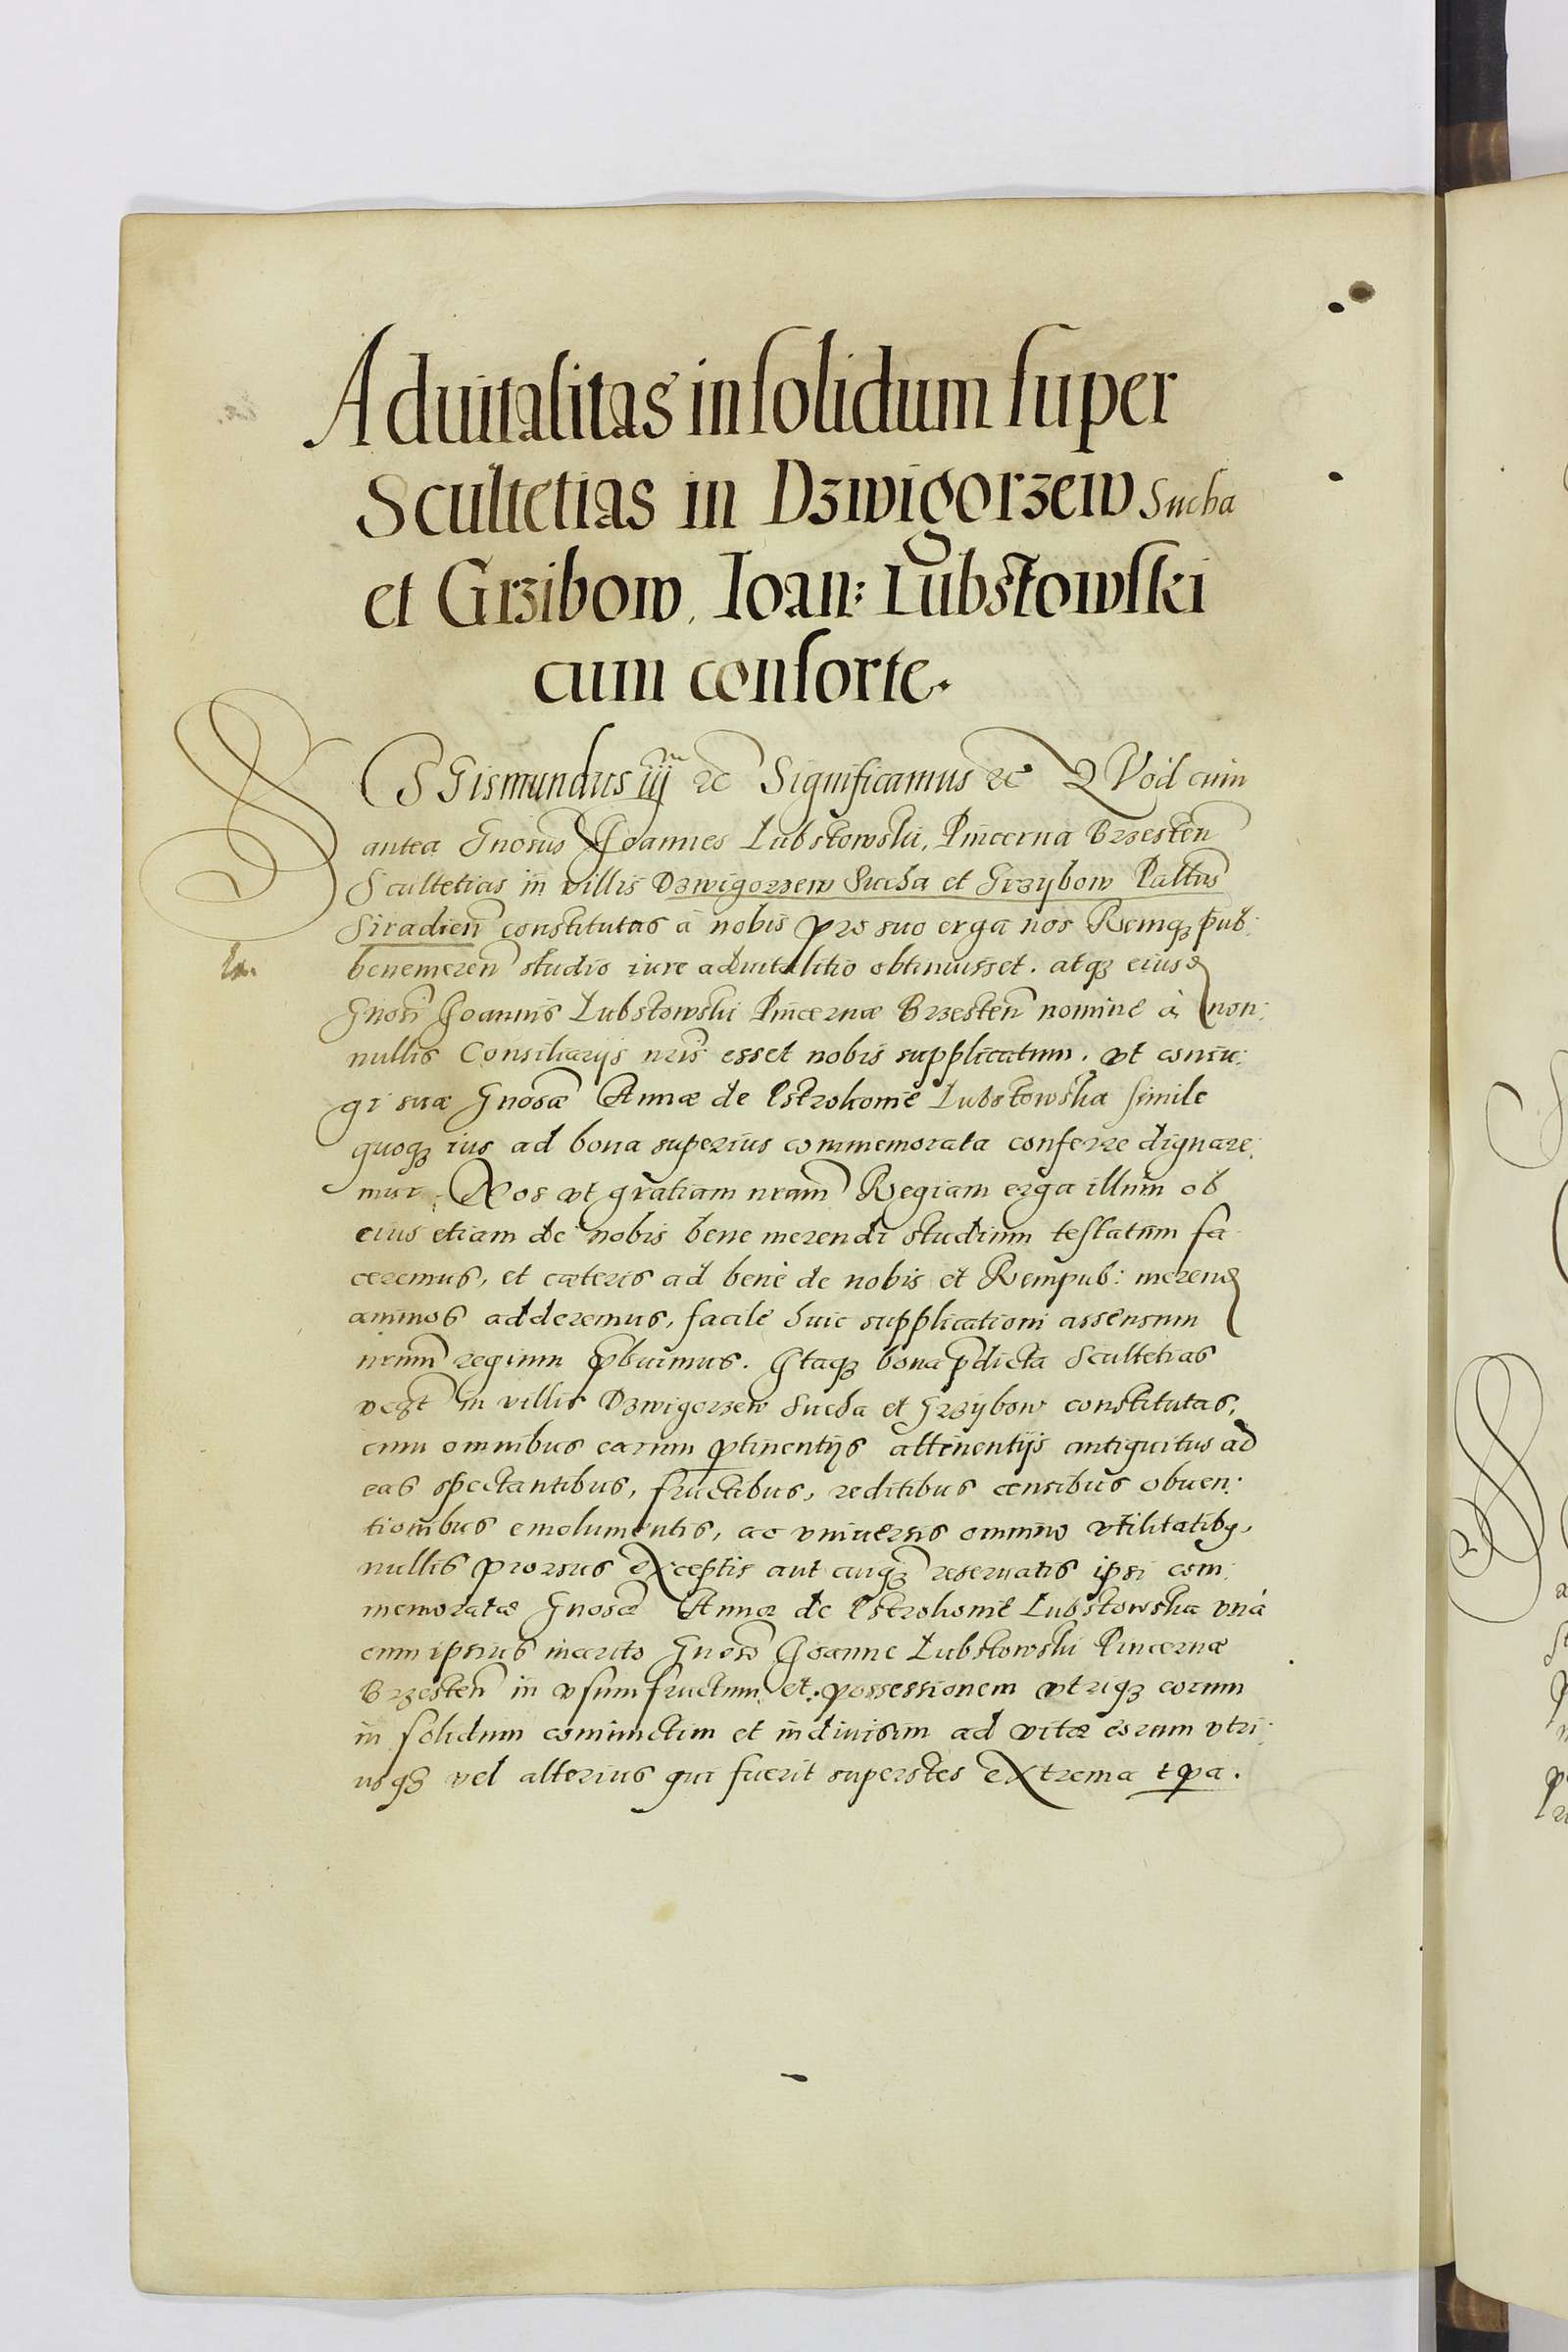 Aduitalitas in solidum super
Scultetias in Dzwigorzew Sucha
et Grzibow. Ioan: Lubstowski
cum consorte.
SIGismundus iij &c Significamus &c QVod cum
antea Gnosus Joannes Lubstowski, Pincerna Brzesten
Scultetias in villis Dzwigorzew Sucha et Grzybow Pallus
Siradien constitutas à nobis pro suo erga nos Remq; pub:
benemeren studio iure aduitalitio obtinuisset. atq; eiusd
Gnosi Joannis Lubstowski Pincernæ Brzesten nomine à non:
nullis Consiliarijs nris esset nobis supplicatum. vt coniu:
gi suæ Gnosæ Annæ de Ostrokonie Lubstowska simile
quoq; ius ad bona superius commemorata conferre dignare:
mur. Nos vt gratiam nram Regiam erga illum ob
eius etiam de nobis bene merendi studium testatam fa
ceremus, et cæteris ad benè de nobis et Rempub: merend
animos adderemus, facile huic supplicationi assensum
nrum regium pbuimus. Itaq; bona pdicta Scultetias
vegt in villis Dzwigorzew Sucha et Grzybow constitutas,
cum omnibus earum ptinentijs attinentijs antiquitus ad
eas spectantibus, fructibus, reditibus censibus obuen:
tionibus emolumentis, ac vniuersis omnino vtilitatibg,
nullis prorsus exceptis aut cuiq; reseruatis ipsi com:
memoratæ Gnosæ Annæ de Ostrokonie Lubstowska vnà
cum ipsius marito Gnoso Joanne Lubstowski Pincernæ
Brzesten in vsumfructum et possessionem vtriq; eorum
in solidum coniunctim et indiuisim ad vitæ eorum vtri:
usq; vel alterius qui fuerit superstes extrema tpa.